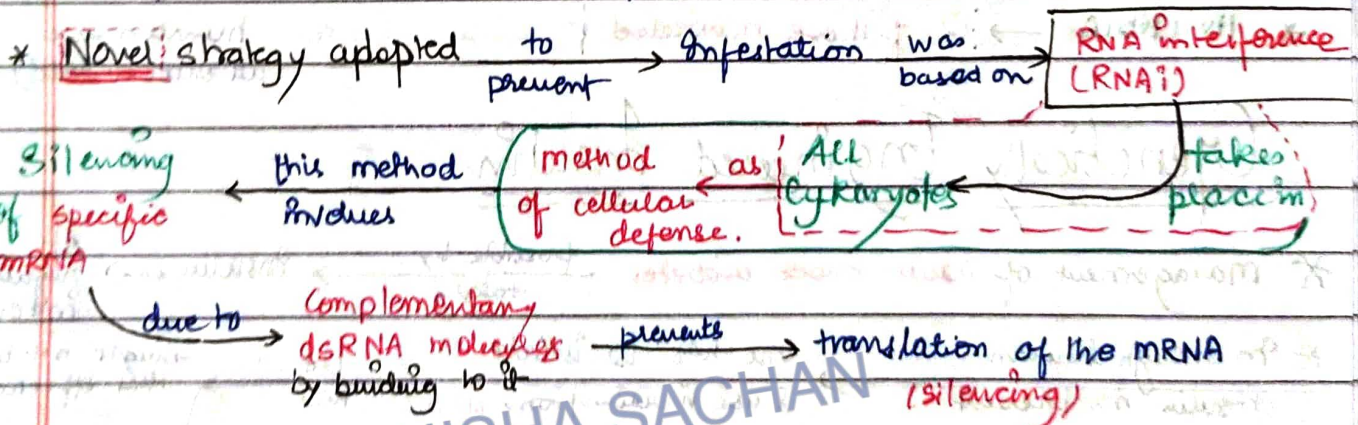 * Novel strategy adopted to prevent → Infestation was based on → RNA interference (RNAi)
takes place in
All Eukaryotes
as
method of cellular defense.
this method involves
Silencing of specific mRNA
due to
Complementary dsRNA molecules by binding to it
prevents
translation of the mRNA (silencing)
SACHAN